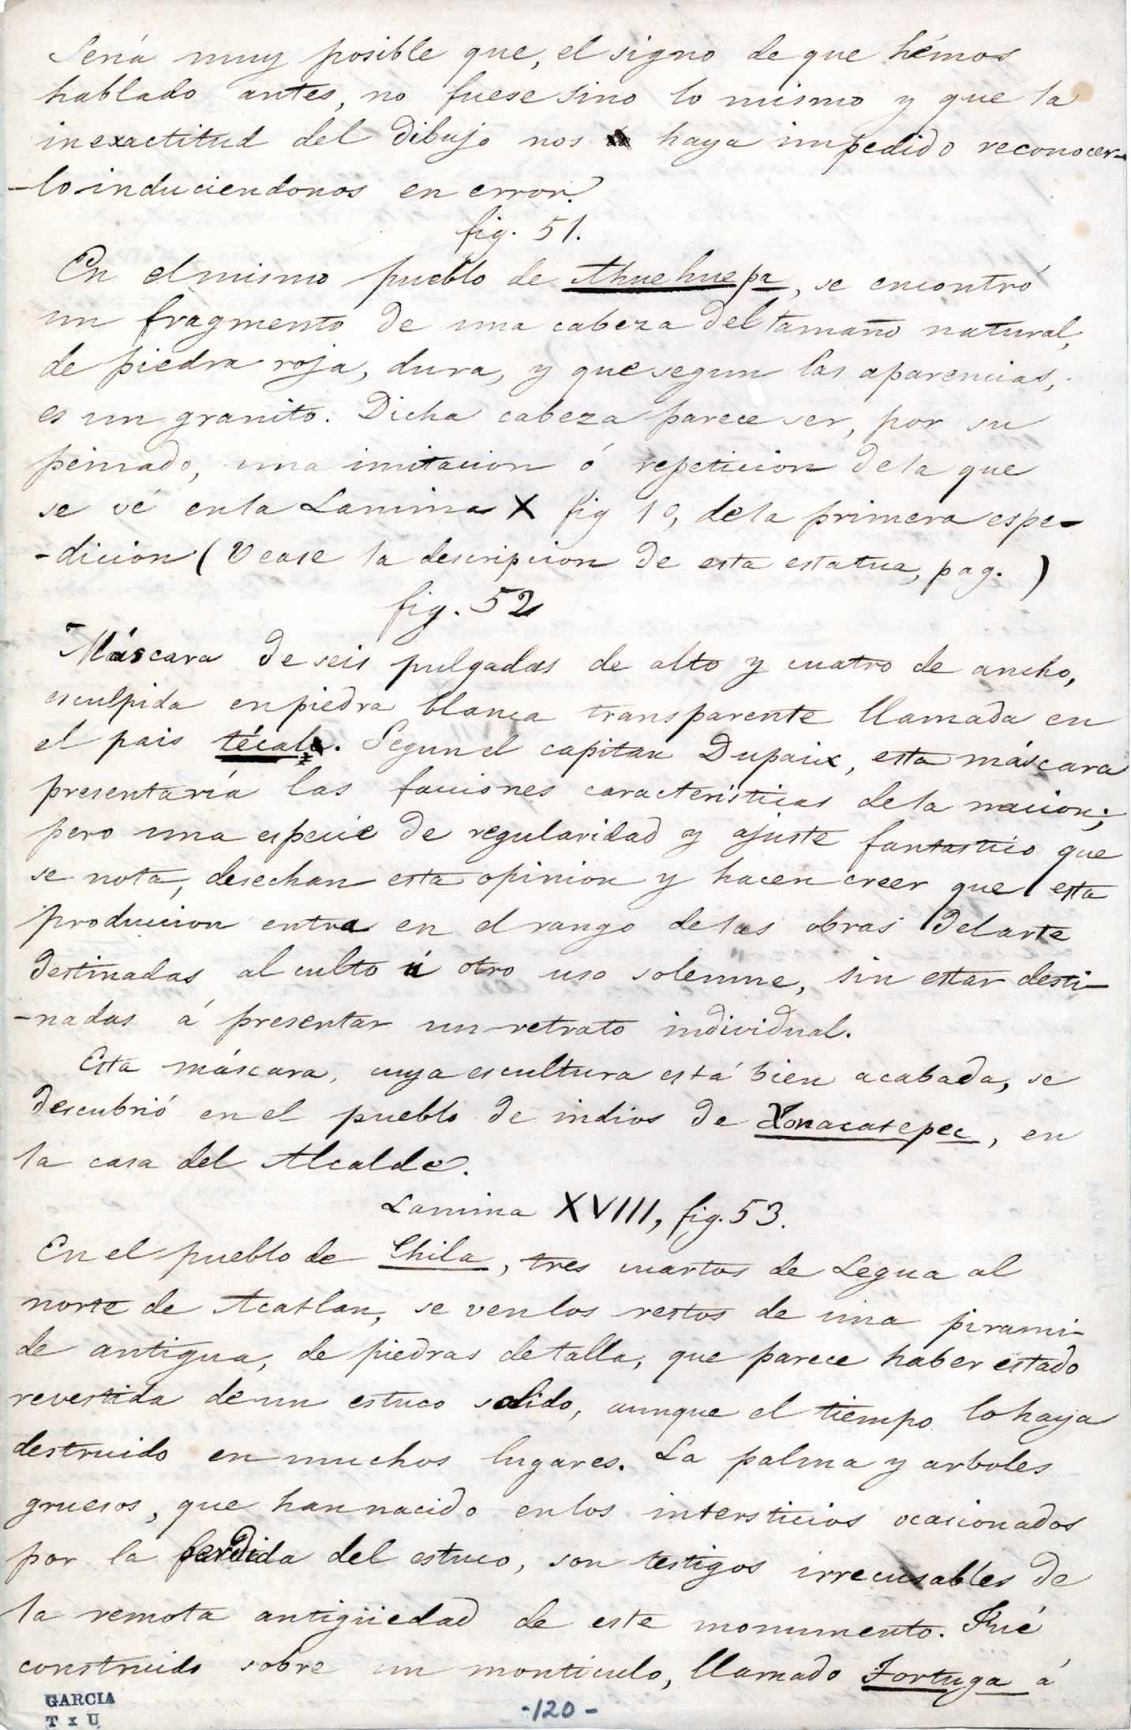 Sería muy posible que, el signo de que hémos
hablado antes, no fuese sino lo mismo y que la
inexactitud del dibujo nos haya impedido reconocer-
-lo induciendonos en error.
fig. 51.
En el mismo pueblo de Ahuehuepa, se encontró
un fragmento de una cabeza del tamaño natural,
de piedra roja, dura, y que segun las apariencias,
es un granito. Dicha cabeza parece ser, por su
peinado, una imitacion ó repeticion de la que
se vé en la Lamina X fig 10, de la primera espe-
-dicion (Vease la descripcion de esta estatua, pag. )
fig. 52
Máscara de seis pulgadas de alto y cuatro de ancho,
esculpida en piedra blanca transparente llamada en
el pais técale. Segun el capitan Dupaix, esta máscara
presentaría las facciones caracteristicas de la nacion;
pero una especie de regularidad y ajuste fantastico que
se nota, desechan esta opinion y hacen creer que esta
produccion entra en el rango de las obras del arte
destinadas al culto ú otro uso solemne, sin estar desti-
-nadas á presentar un retrato individual.
Esta máscara, cuya escultura está bien acabada, se
descubrió en el pueblo de indios de Xonacatepec, en
la casa del Alcalde.
Lamina XVIII, fig. 53.
En el pueblo de Chila, tres cuartos de Legua al
norte de Acatlan, se ven los restos de una pirami-
de antigua, de piedras de talla, que parece haber estado
revestida de un estuco solido, aunque el tiempo lo haya
destruido en muchos lugares. La palma y arboles
gruesos, que han nacido en los intersticios ocasionados
por la perdida del estuco, son testigos irrecusables de
la remota antigüedad de este monumento. Fué
construido sobre un monticulo, llamado Tortuga á
GARCIA
T x U
-120-